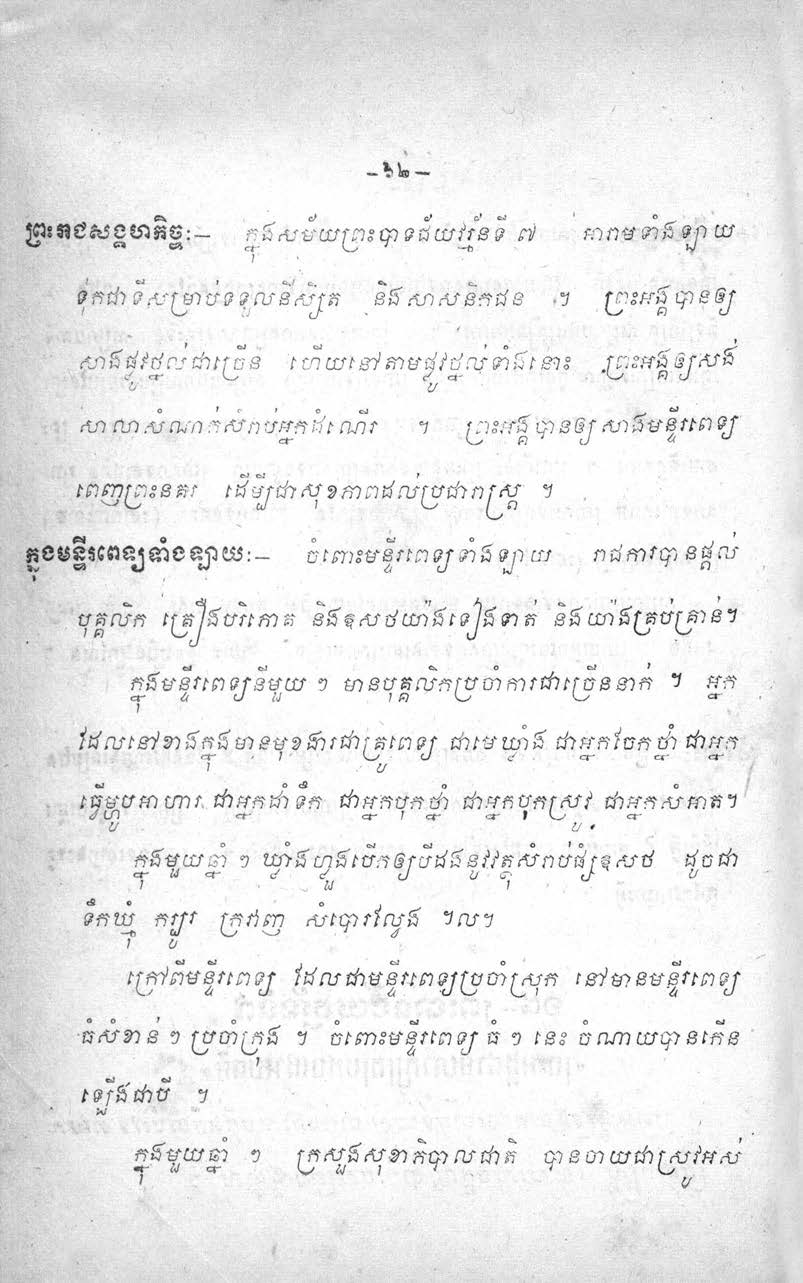 –៦២–
ព្រះរាជសង្គហកិច្ច:– ក្នុងសម័យព្រះបាទជ័យវរ្ម័នទី ៧ អារាមទាំងឡាយ
ទុកជាទីសម្រាប់ទទួលនិស្សិត និងសាសនិកជន ។ ព្រះអង្គបានឲ្យ
សាងផ្លូវថ្នល់ជាច្រើន ហើយនៅតាមផ្លូវថ្នល់ទាំងនោះ ព្រះអង្គឲ្យសង់
សាលាសំណាក់សំរាប់អ្នកដំណើរ ។ ព្រះអង្គបានឲ្យសាងមន្ទីរពេទ្យ
ពេញព្រះនគរ ដើម្បីជាសុខភាពដល់ប្រជារាស្ត្រ ។
ក្នុងមន្ទីរពេទ្យទាំងឡាយ:– ចំពោះមន្ទីរពេទ្យទាំងឡាយ រាជការបានផ្តល់
បុគ្គលិក គ្រឿងបរិភោគ និងឱសថយ៉ាងទៀងទាត់ និងយ៉ាងគ្រប់គ្រាន់។
ក្នុងមន្ទីរពេទ្យនីមួយ ៗ មានបុគ្គលិកប្រចាំការជាច្រើននាក់ ។ អ្នក
ដែលនៅខាងក្នុងមានមុខងារជាគ្រូពេទ្យ ជាមេឃ្លាំង ជាអ្នកចែកថ្នាំ ជាអ្នក
ធ្វើម្ហូបអាហារ ជាអ្នកដាំទឹក ជាអ្នកបុកថ្នាំ ជាអ្នកបុកស្រូវ ជាអ្នកសំអាត។
ក្នុងមួយឆ្នាំ ៗ ឃ្លាំងហ្លួងបើកឲ្យបីដងនូវវត្ថុសំរាប់ផ្សំឱសថ ដូចជា
ទឹកឃ្មុំ ករ្បូរ ក្រវាញ សំបោរល្វែង ។ល។
ក្រៅពីមន្ទីរពេទ្យ ដែលជាមន្ទីរពេទ្យប្រចាំស្រុក នៅមានមន្ទីរពេទ្យ
ធំសំខាន់ ៗ ប្រចាំក្រុង ។ ចំពោះមន្ទីរពេទ្យ ធំ ៗ នេះ ចំណាយបានកើន
ឡើងជាបី ។
ក្នុងមួយឆ្នាំ ៗ ក្រសួងសុខាភិបាលជាតិ បានចាយជាស្រូវអស់